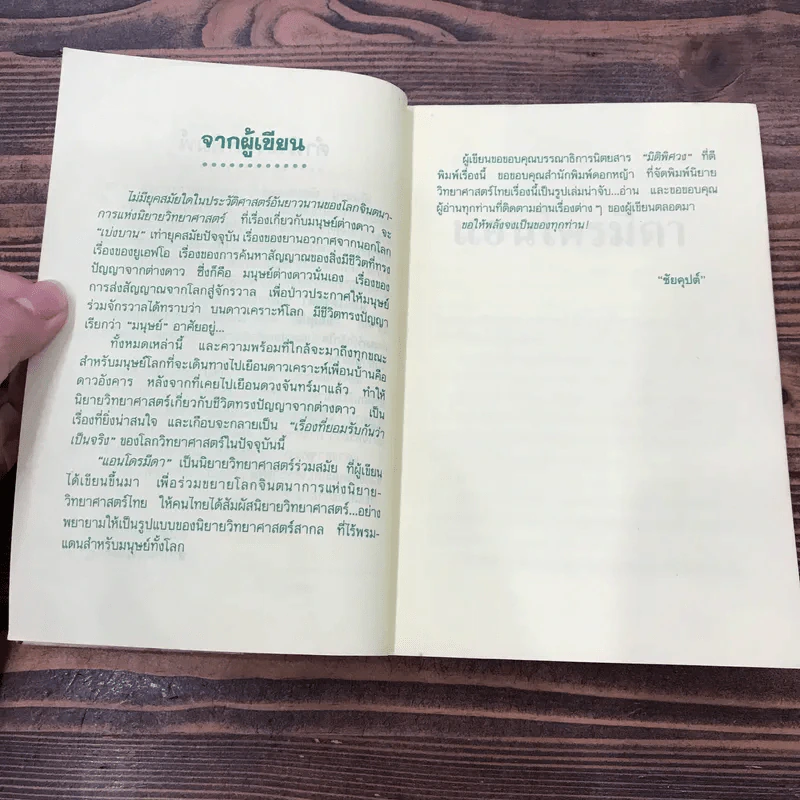 จากผู้เขียน
ไม่มียุคสมัยใดในประวัติศาสตร์อันยาวนานของโลกจินตนา-
การแห่งนิยายวิทยาศาสตร์ ที่เรื่องเกี่ยวกับมนุษย์ต่างดาว จะ
"เบ่งบาน" เท่ายุคสมัยปัจจุบัน เรื่องของยานอวกาศจากนอกโลก
เรื่องของยูเอฟโอ เรื่องของการค้นหาสัญญาณของสิ่งมีชีวิตที่ทรง
ปัญญาจากต่างดาว ซึ่งก็คือ มนุษย์ต่างดาวนั่นเอง เรื่องของ
การส่งสัญญาณจากโลกสู่จักรวาล เพื่อป่าวประกาศให้มนุษย์
ร่วมจักรวาลได้ทราบว่า บนดาวเคราะห์โลก มีชีวิตทรงปัญญา
เรียกว่า "มนุษย์" อาศัยอยู่...
ทั้งหมดเหล่านี้ และความพร้อมที่ใกล้จะมาถึงทุกขณะ
สำหรับมนุษย์โลกที่จะเดินทางไปเยือนดาวเคราะห์เพื่อนบ้านคือ
ดาวอังคาร หลังจากที่เคยไปเยือนดวงจันทร์มาแล้ว ทำให้
นิยายวิทยาศาสตร์เกี่ยวกับชีวิตทรงปัญญาจากต่างดาว เป็น
เรื่องที่ยิ่งน่าสนใจ และเกือบจะกลายเป็น "เรื่องที่ยอมรับกันว่า
เป็นจริง" ของโลกวิทยาศาสตร์ในปัจจุบันนี้
"แอนโดรมีดา" เป็นนิยายวิทยาศาสตร์ร่วมสมัย ที่ผู้เขียน
ได้เขียนขึ้นมา เพื่อร่วมขยายโลกจินตนาการแห่งนิยาย-
วิทยาศาสตร์ไทย ให้คนไทยได้สัมผัสนิยายวิทยาศาสตร์...อย่าง
พยายามให้เป็นรูปแบบของนิยายวิทยาศาสตร์สากล ที่ไร้พรม-
แดนสำหรับมนุษย์ทั้งโลก
ผู้เขียนขอขอบคุณบรรณาธิการนิตยสาร "มิติพิศวง" ที่ตี
พิมพ์เรื่องนี้ ขอขอบคุณสำนักพิมพ์ดอกหญ้า ที่จัดพิมพ์นิยาย
วิทยาศาสตร์ไทยเรื่องนี้เป็นรูปเล่มน่าจับ...อ่าน และขอขอบคุณ
ผู้อ่านทุกท่านที่ติดตามอ่านเรื่องต่าง ๆ ของผู้เขียนตลอดมา
ขอให้พลังจงเป็นของทุกท่าน!
"ชัยคุปต์"